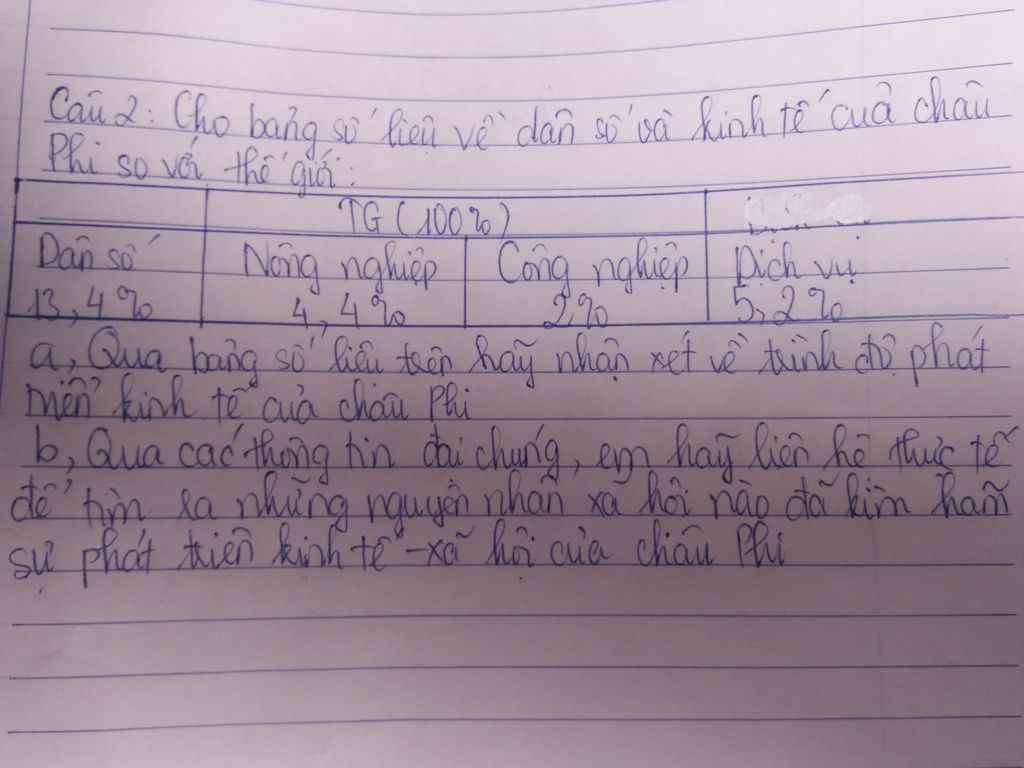 Câu 2: Cho bảng số liệu về dân số và kinh tế của châu
Phi so với thế giới:
TG (100%)
Dân số Nông nghiệp Công nghiệp Dịch vụ
13,4% 4,4% 2% 5,2%
a, Qua bảng số liệu trên hãy nhận xét về trình độ phát
triển kinh tế của châu Phi
b, Qua các thông tin đại chúng, em hãy liên hệ thực tế
để tìm ra những nguyên nhân xã hội nào đã kìm hãm
sự phát triển kinh tế - xã hội của châu Phi